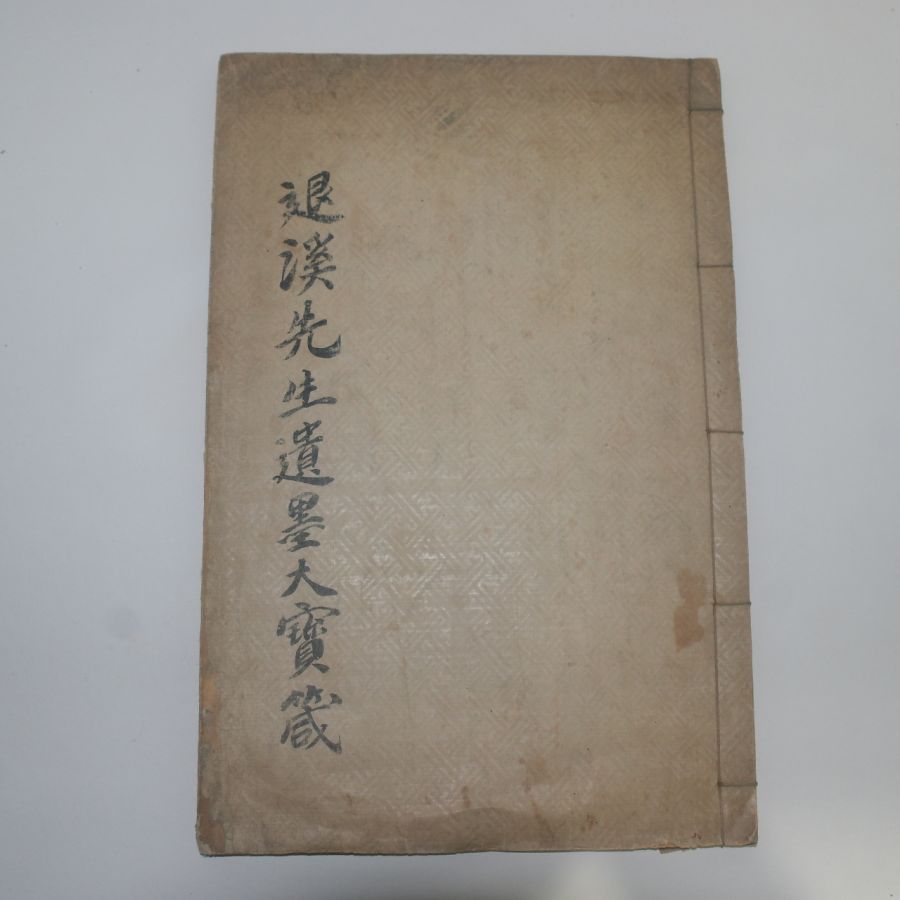 退溪先生遺墨大寶箴